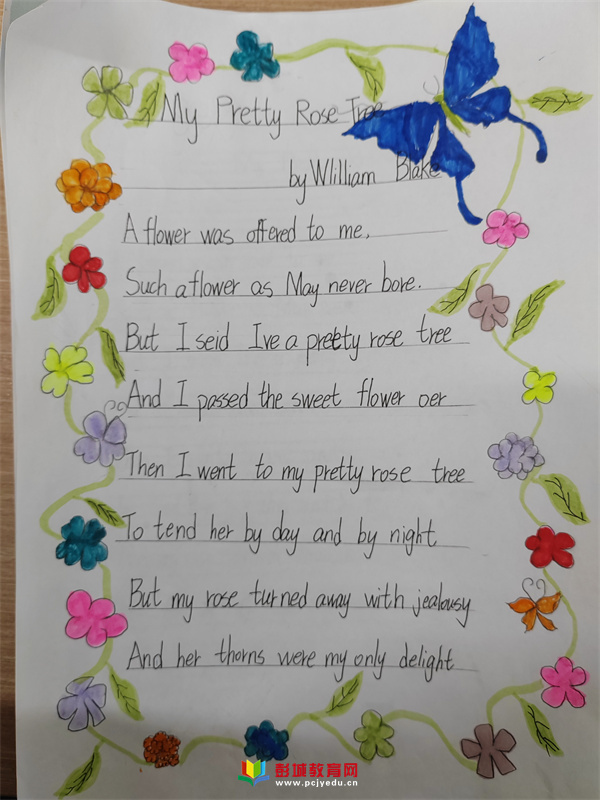 My Pretty Rose Tree
by Wlilliam Blake
A flower was offered to me,
Such a flower as May never bore.
But I seid Ive a pretty rose tree
And I passed the sweet flower oer
Then I went to my pretty rose tree
To tend her by day and by night
But my rose turned away with jealousy
And her thorns were my only delight
彭城教育网
www.pcjyedu.cn